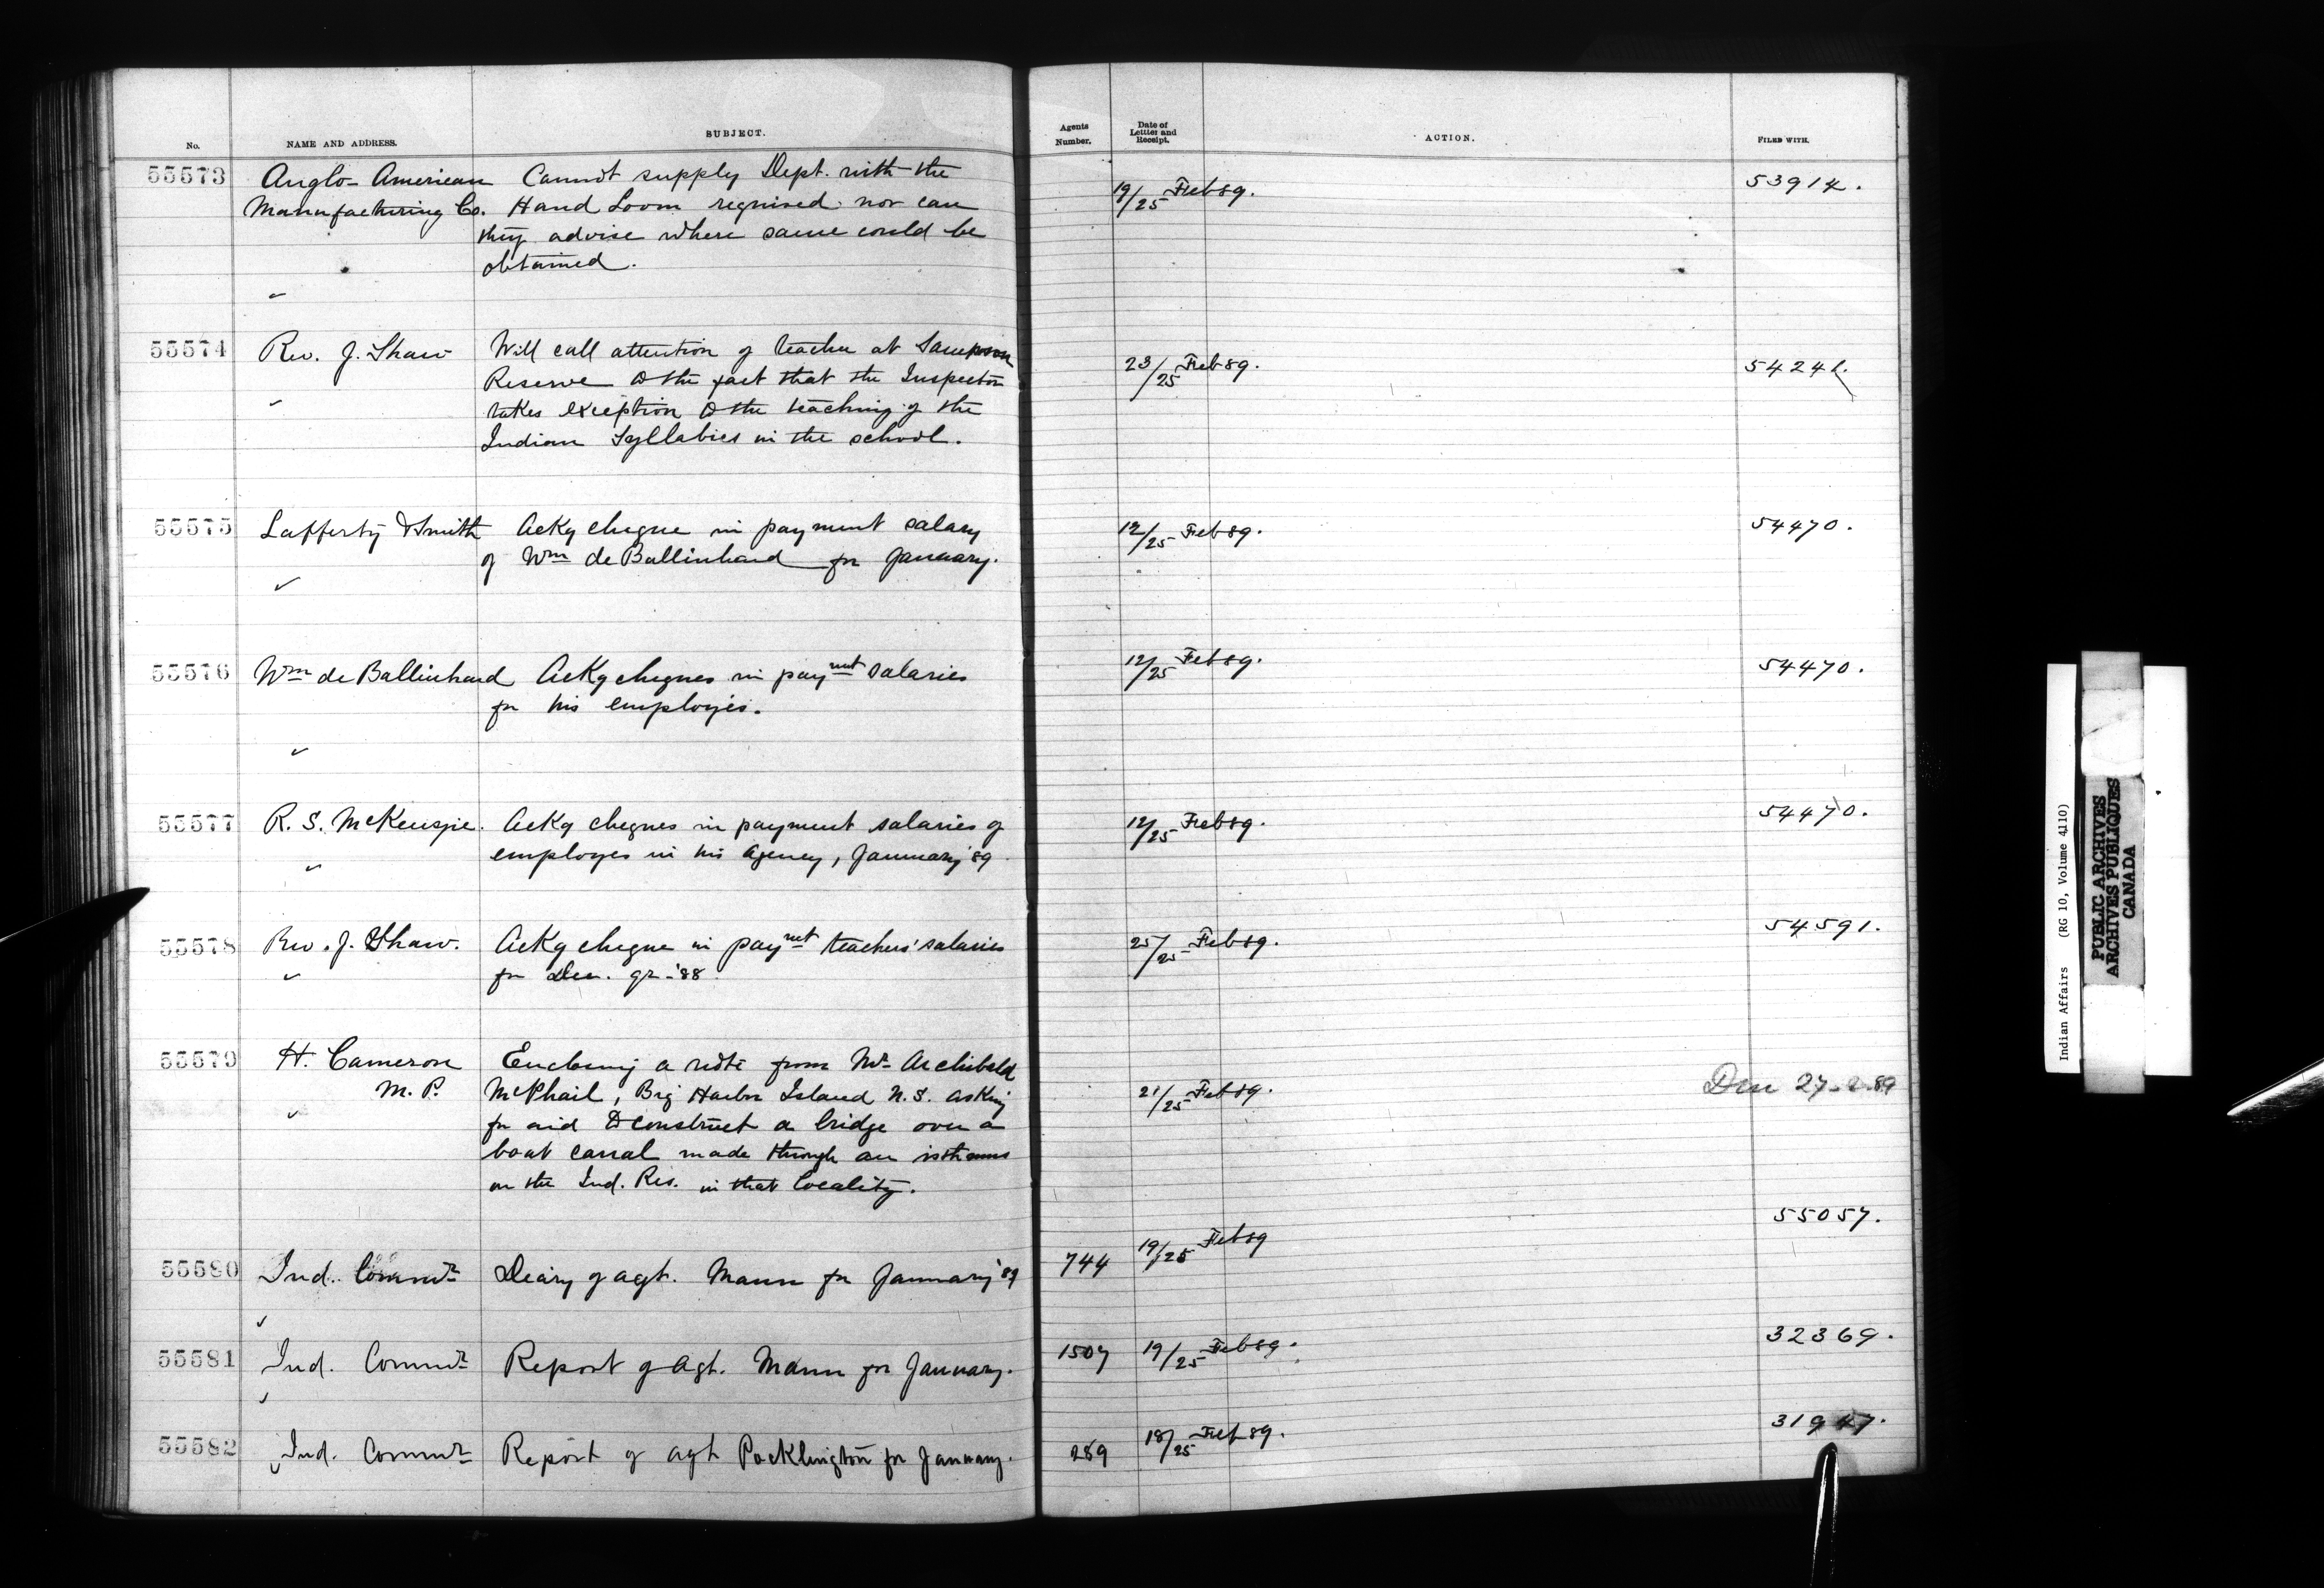 No. NAME AND ADDRESS. SUBJECT. Agents Number. Date of Letter and Receipt. ACTION. FILED WITH.
55573 Anglo-American Cannot supply Dept. with the 19/25 Feb 89. 53914.
Manufacturing Co. Hand Loom required nor can
they advise where same could be
obtained.
55574 Rev. J. Shaw Will call attention of teacher at Sampson 23/25 Feb 89. 54241.
Reserve to the fact that the Inspector
takes exception to the teaching of the
Indian Syllabics in the school.
55575 Lafferty & Smith Ackg cheque in payment salary 12/25 Feb 89. 54470.
of Wm de Ballinhard for January.
55576 Wm de Ballinhard Ackg cheques in paymnt salaries 12/25 Feb 89. 54470.
for his employés.
55577 R. S. McKenzie. Ackg cheques in payment salaries of 12/25 Feb 89. 54470.
employes in his Agency, January '89
55578 Rev. J. Shaw. Ackg cheque in paymnt teachers' salaries 25/25 Feb 89. 54591.
for Dec. qr. '88
55579 H. Cameron Enclosing a note from Mr Archibald
M. P. McPhail, Big Harbor Island N.S. asking 21/25 Feb 89. 27-2-89
for aid to construct a bridge over a
boat canal made through an isthmus
on the Ind. Res. in that locality.
55580 Ind. Commr Diary of agt. Mann for January '89 744 19/25 Feb 89 55057.
55581 Ind. Commr Report of Agt. Mann for January. 1507 19/25 Feb 89. 32369.
55582 Ind. Commr Report of agt Pocklington for January. 289 18/25 Feb 89. 31947.
Indian Affairs (RG 10, Volume 4110)
PUBLIC ARCHIVES
ARCHIVES PUBLIQUES
CANADA